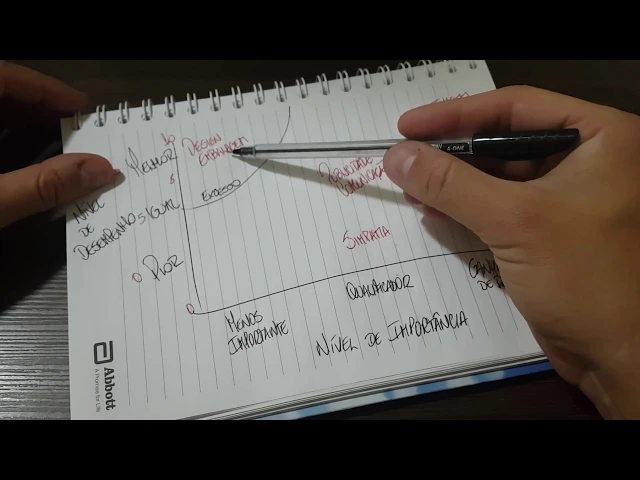 10
DESIGN
EMBALAGEM
MELHOR
EXCESSO
NÍVEL
DE
DESEMPENHO
5 IGUAL
SIMPATIA
0 PIOR
0
MENOS
IMPORTANTE
QUALIFICADOR
DE
NÍVEL DE IMPORTÂNCIA
Abbott
A Promise for Life
A-ONE